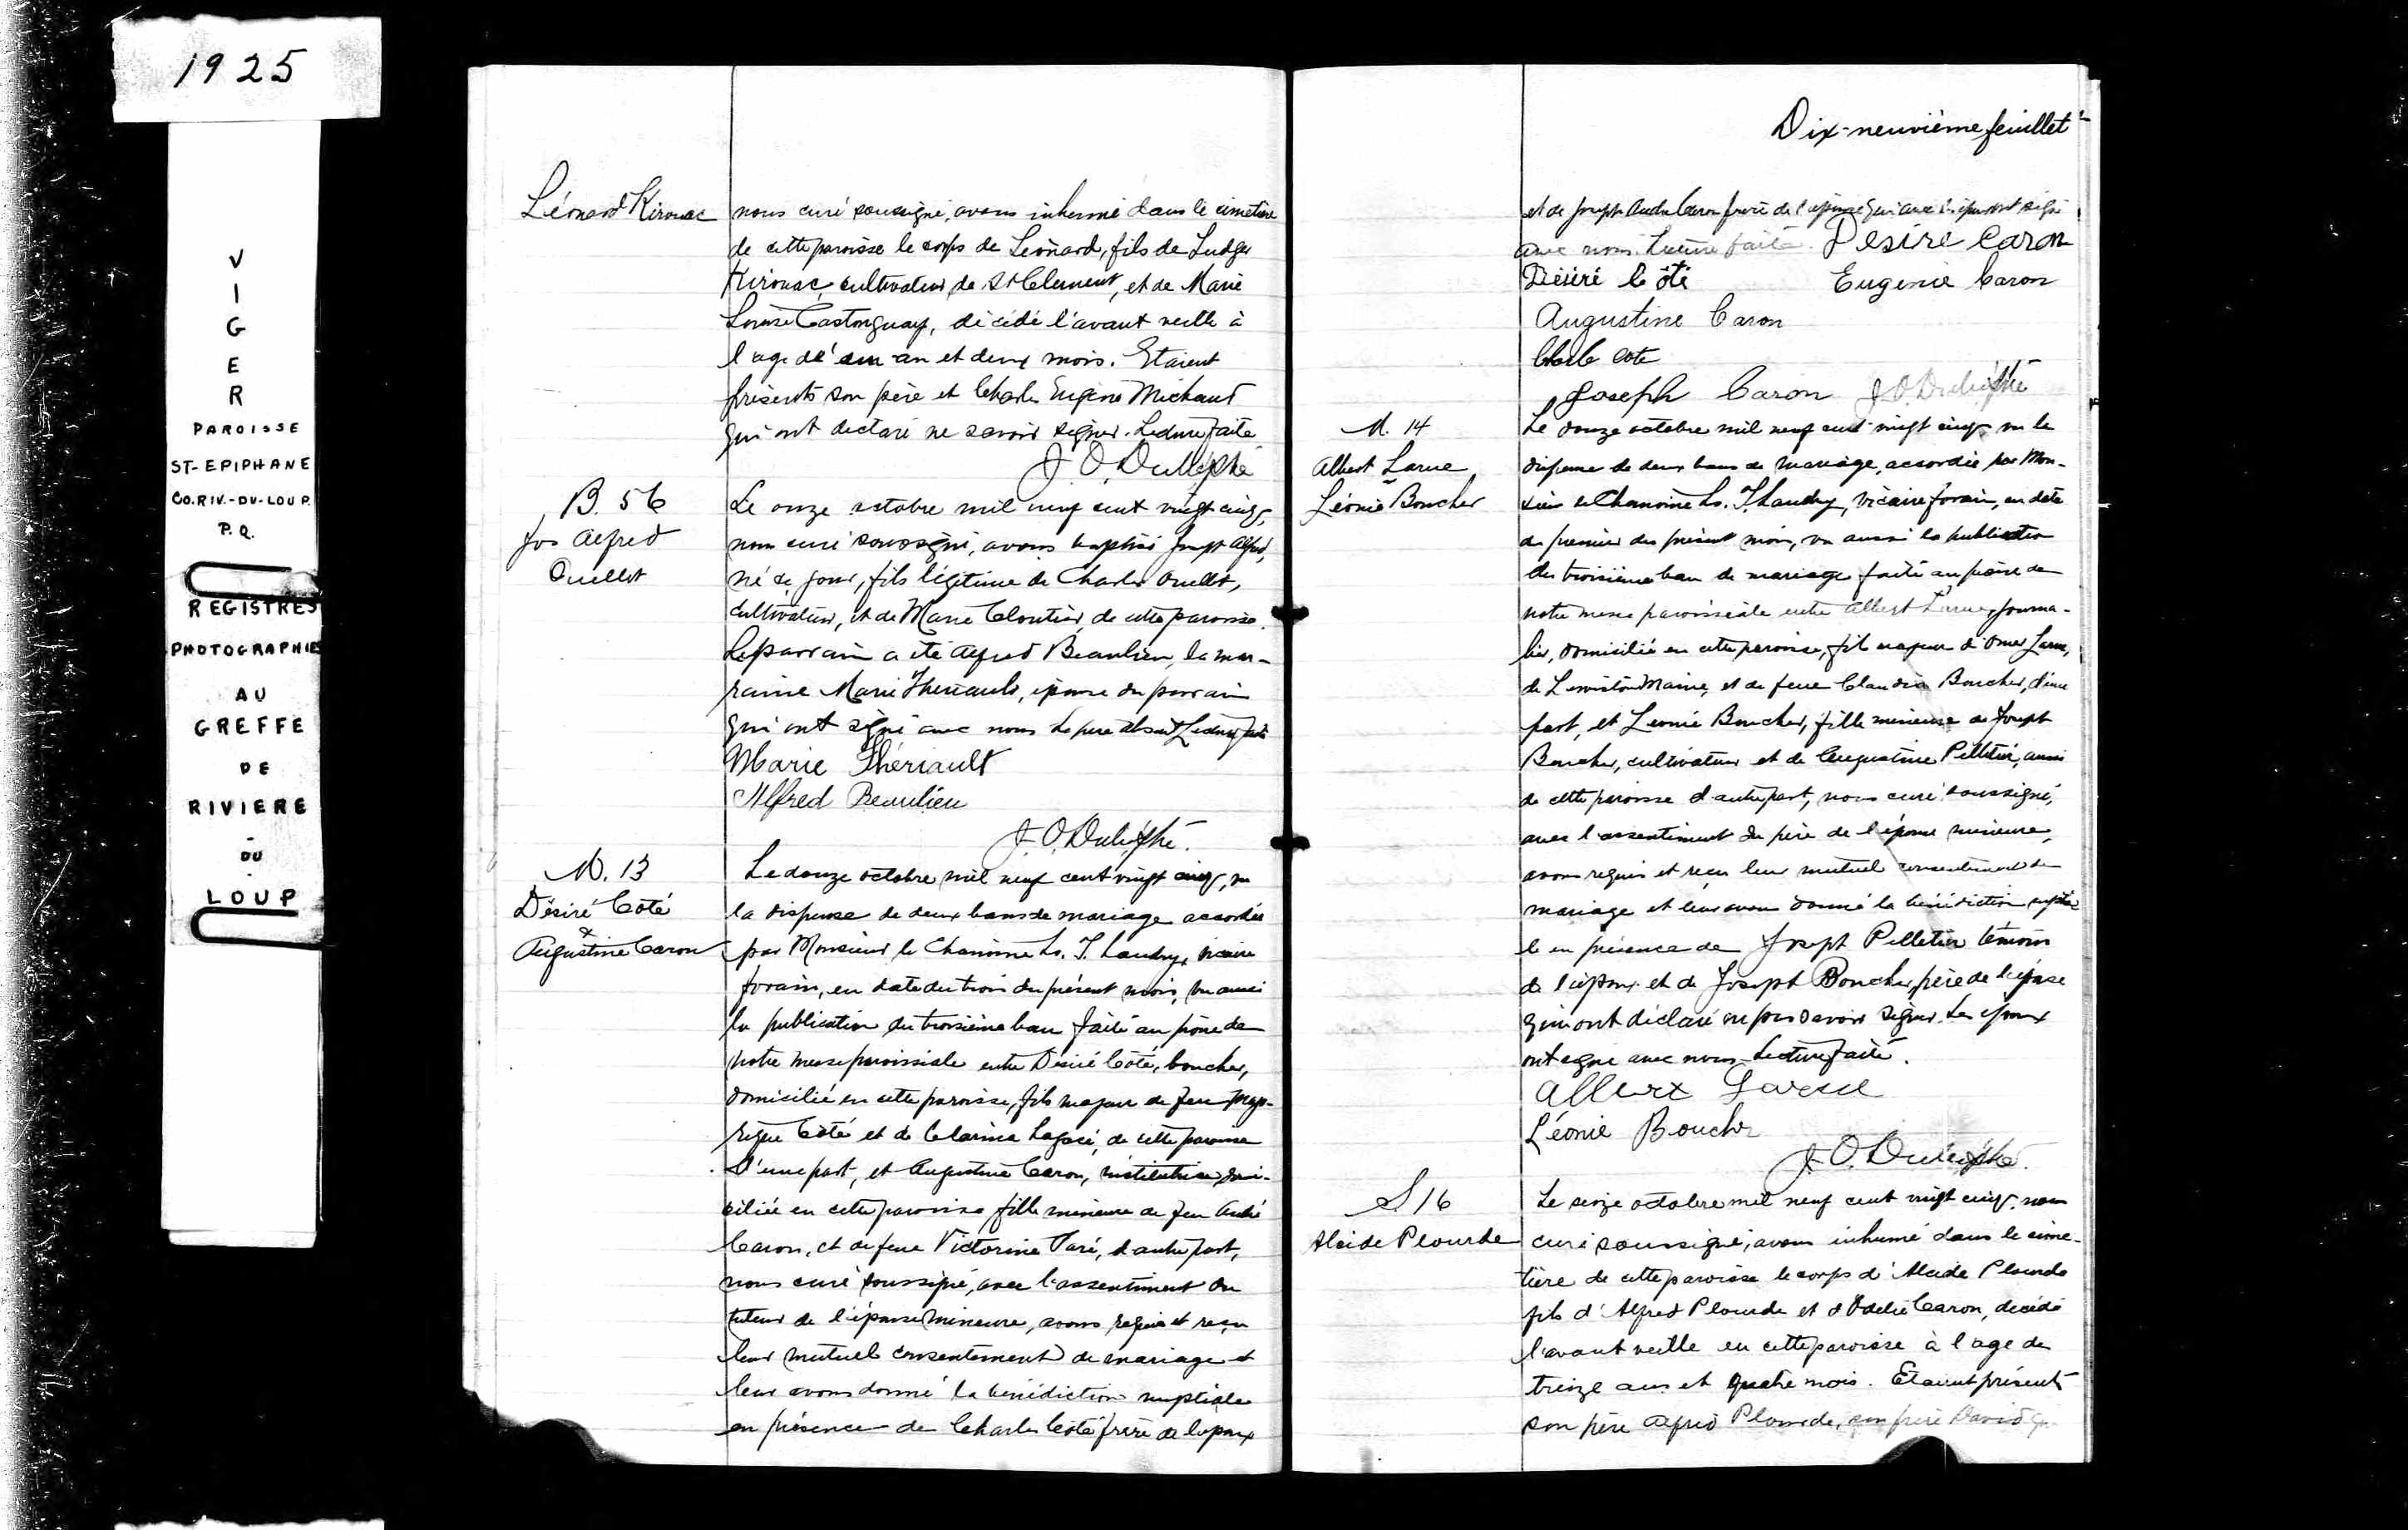 1925
V
I
G
E
R
PAROISSE
ST-EPIPHANE
CO.RIV.-DU-LOUP.
P.Q.
REGISTRES
PHOTOGRAPHIES
AU
GREFFE
DE
RIVIERE
-
DU
-
LOUP
Léonard Kirouac
nous curé soussigné, avons inhumé dans le cimetière
de cette paroisse le corps de Léonard, fils de Ludger
Kirouac, cultivateur de St Clement, et de Marie
Louise Castonguay, décédé l'avant veille à
l'age d'un an et deux mois. Etaient
présents son père et Charles Eugène Michaud
qui ont declaré ne savoir signer. Lecture faite
J. O. Dulieppe
B. 56
Jos Alfred
Ouellet
Le onze octobre mil neuf cent vingt cinq,
nous curé soussigné, avons baptisé Joseph Alfred,
né ce jour, fils légitime de Charles Ouellet,
cultivateur, et de Marie Cloutier, de cette paroisse.
Le parrain a été Alfred Beaulieu, la mar-
raine Marie Theriault, épouse du parrain
qui ont signé avec nous Le père absent Lecture faite
Marie Thériault
Alfred Beaulieu
M. 13
Désiré Côté
&
Augustine Caron
Le douze octobre mil neuf cent vingt cinq, vu
la dispense de deux bans de mariage accordée
par Monsieur le Chanoine Ls. J. Landry, vicaire
forain, en date du trois du présent mois, vu aussi
la publication du troisième ban faite au prône de
notre messe paroissiale entre Désiré Côté, boucher,
domicilié en cette paroisse, fils majeur de feu
Côté et de Clarina Lagacé, de cette paroisse
d'une part, et Augustine Caron, institutrice, domi-
ciliée en cette paroisse fille mineure de feu André
Caron, et de feue Victorine Paré, d'autre part,
nous curé soussigné, avec l'assentiment du
tuteur de l'épouse mineure, avons requis et reçu
leur mutuel consentement de mariage et
leur avons donné la bénédiction nuptiale
en présence de Charles Côté frère de l'époux
Dix-neuvième feuillet
et de Joseph André Caron frère de l'épouse qui avec les époux ont signé
avec nous. Lecture faite. Désiré Caron
Désiré Côté Eugenie Caron
Augustine Caron
Charles Cote
Joseph Caron
M. 14
Albert Larue
&
Léonie Boucher
Le douze octobre mil neuf cent vingt cinq, vu la
dispense de deux bans de mariage, accordée par Mon-
sieur le Chanoine Ls. J. Landry, vicaire forain, en date
du premier du présent mois, vu aussi la publication
du troisième ban de mariage faite au prône de
notre messe paroissiale entre Albert Larue, journa-
lier, domicilié en cette paroisse, fils majeur d'Omer Larue,
de Lewiston Maine, et de feue Claudia Boucher, d'une
part, et Leonie Boucher, fille mineure de Joseph
Boucher, cultivateur et de Augustine Pelletier, aussi
de cette paroisse d'autre part, nous curé soussigné,
avec l'assentiment du père de l'épouse mineure,
avons requis et reçu leur mutuel consentement de
mariage et leur avons donné la bénédiction nuptia-
le en présence de Joseph Pelletier témoin
de l'époux et de Joseph Boucher, père de l'épouse
qui ont déclaré ne pas savoir signer. Les époux
ont signé avec nous. Lecture faite.
Albert Larue
Léonie Boucher
S 16
Alcide Plourde
Le seize octobre mil neuf cent vingt cinq, nous
curé soussigné, avons inhumé dans le cime-
tière de cette paroisse le corps d'Alcide Plourde
fils d'Alfred Plourde et d'Odelie Caron, décédé
l'avant veille en cette paroisse à l'age de
treize ans et quatre mois. Etaient présents
son père Alfred Plourde, son frère David